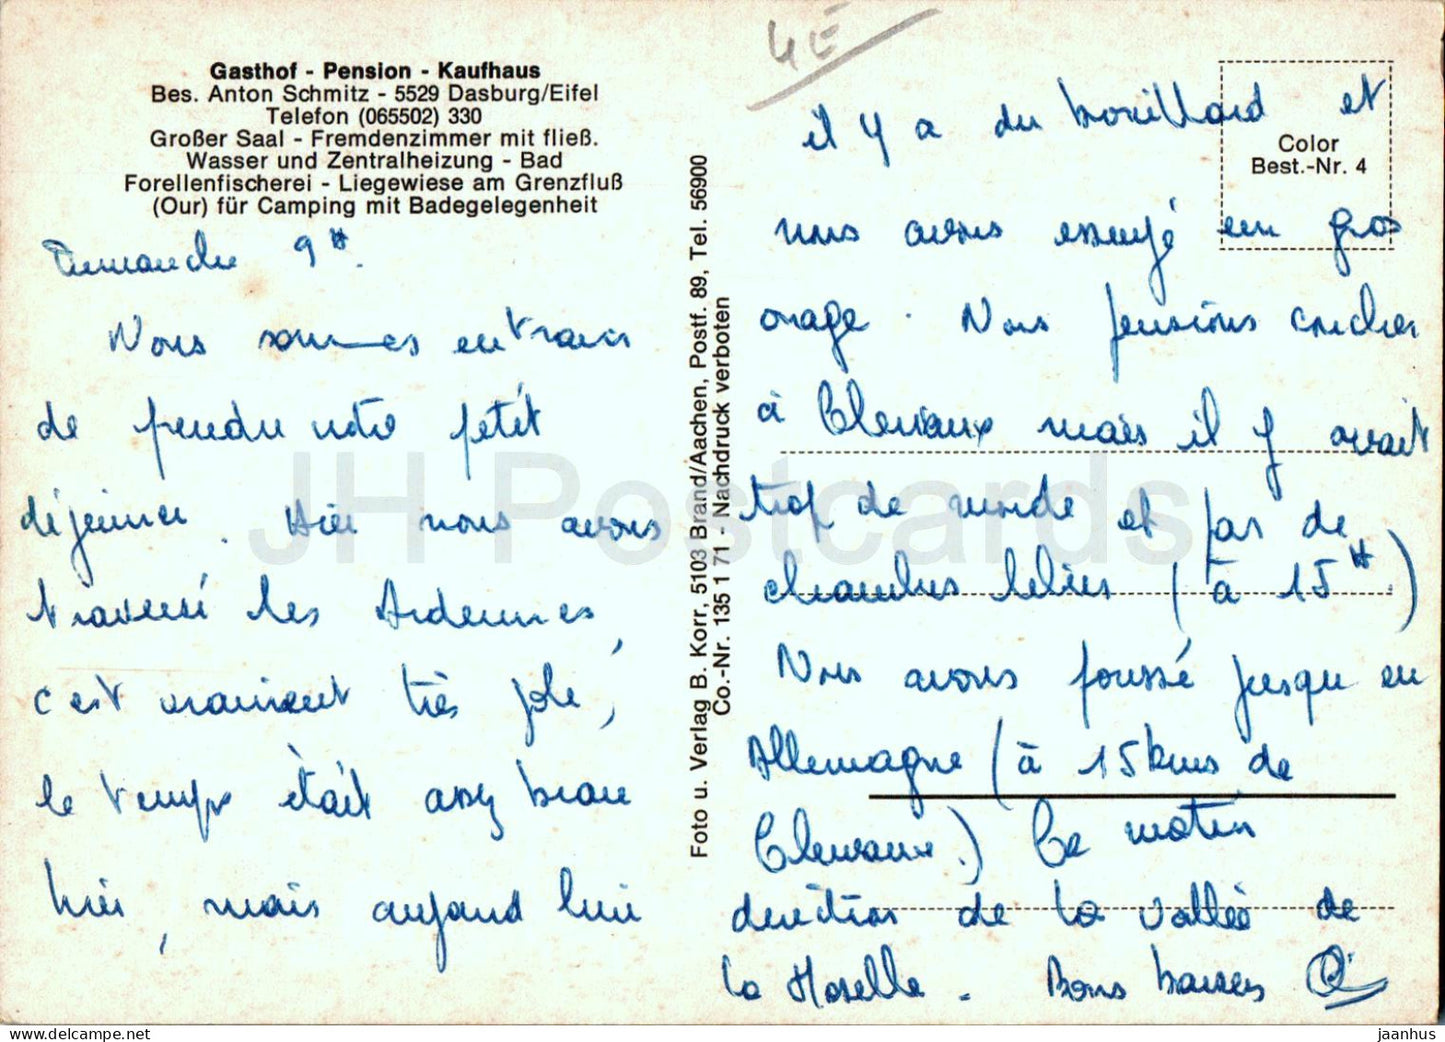 Gasthof - Pension - Kaufhaus
Bes. Anton Schmitz - 5529 Dasburg/Eifel
Telefon (065502) 330
Großer Saal - Fremdenzimmer mit fließ.
Wasser und Zentralheizung - Bad
Forellenfischerei - Liegewiese am Grenzfluß
(Our) für Camping mit Badegelegenheit
Dimanche 9H.
Nous sommes en train
de prendre notre petit
déjeuner. Hier nous avons
traversé les Ardennes,
c'est vraiment très joli,
le temps était assez beau
hier, mais aujourd'hui
Foto u. Verlag B. Korr, 5103 Brand/Aachen, Postf. 89, Tel. 56900
Co.-Nr. 135 1 71 - Nachdruck verboten
4E
Color
Best.-Nr. 4
il y a du brouillard et
nous avons essuyé un gros
orage. Nous pensions coucher
à Clervaux mais il y avait
trop de monde et pas de
chambres libres (à 15H.)
Nous avons poussé jusqu'en
Allemagne (à 15 kms de
Clervaux.) Ce matin
direction de la vallée de
la Moselle. Bons baisers
JH Postcards
jaanhus